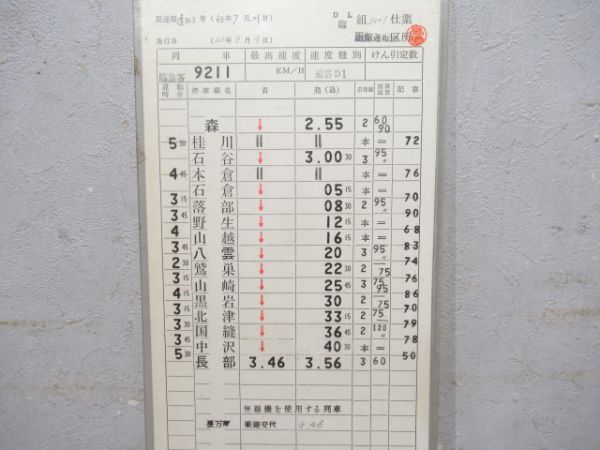 D L
臨 組5001仕業
函館運転区所
施行日
列 車 最高速度 速度種別 けん引定数
臨急客 9211 KM/H 通客D1
運転分 停車場名 着 発(通) 着発線 制限速度 記事
森 ↓ 2.55 2 60/90
5 30 桂川 || || 本 = 72
石谷 ↓ 3.00 30 3 95
4 45 本倉 || || 本 = 76
石倉 ↓ 05 15 本 =
3 15 落部 ↓ 08 30 2 95 70
3 45 野生 ↓ 12 15 本 = 90
4 山越 ↓ 16 15 本 = 68
3 45 八雲 ↓ 20 3 95 83
2 30 鷲巣 ↓ 22 30 2 75 74
3 15 山崎 ↓ 25 45 3 75/95 76
4 15 黒岩 ↓ 30 2 75 86
3 15 北豊津 ↓ 33 15 2 75 70
3 30 国縫 ↓ 36 45 2 120 79
3 45 中沢 ↓ 40 30 本 = 78
5 30 長万部 3.46 3.56 3 60 50
無線機を使用する列車
長万部 乗継交代